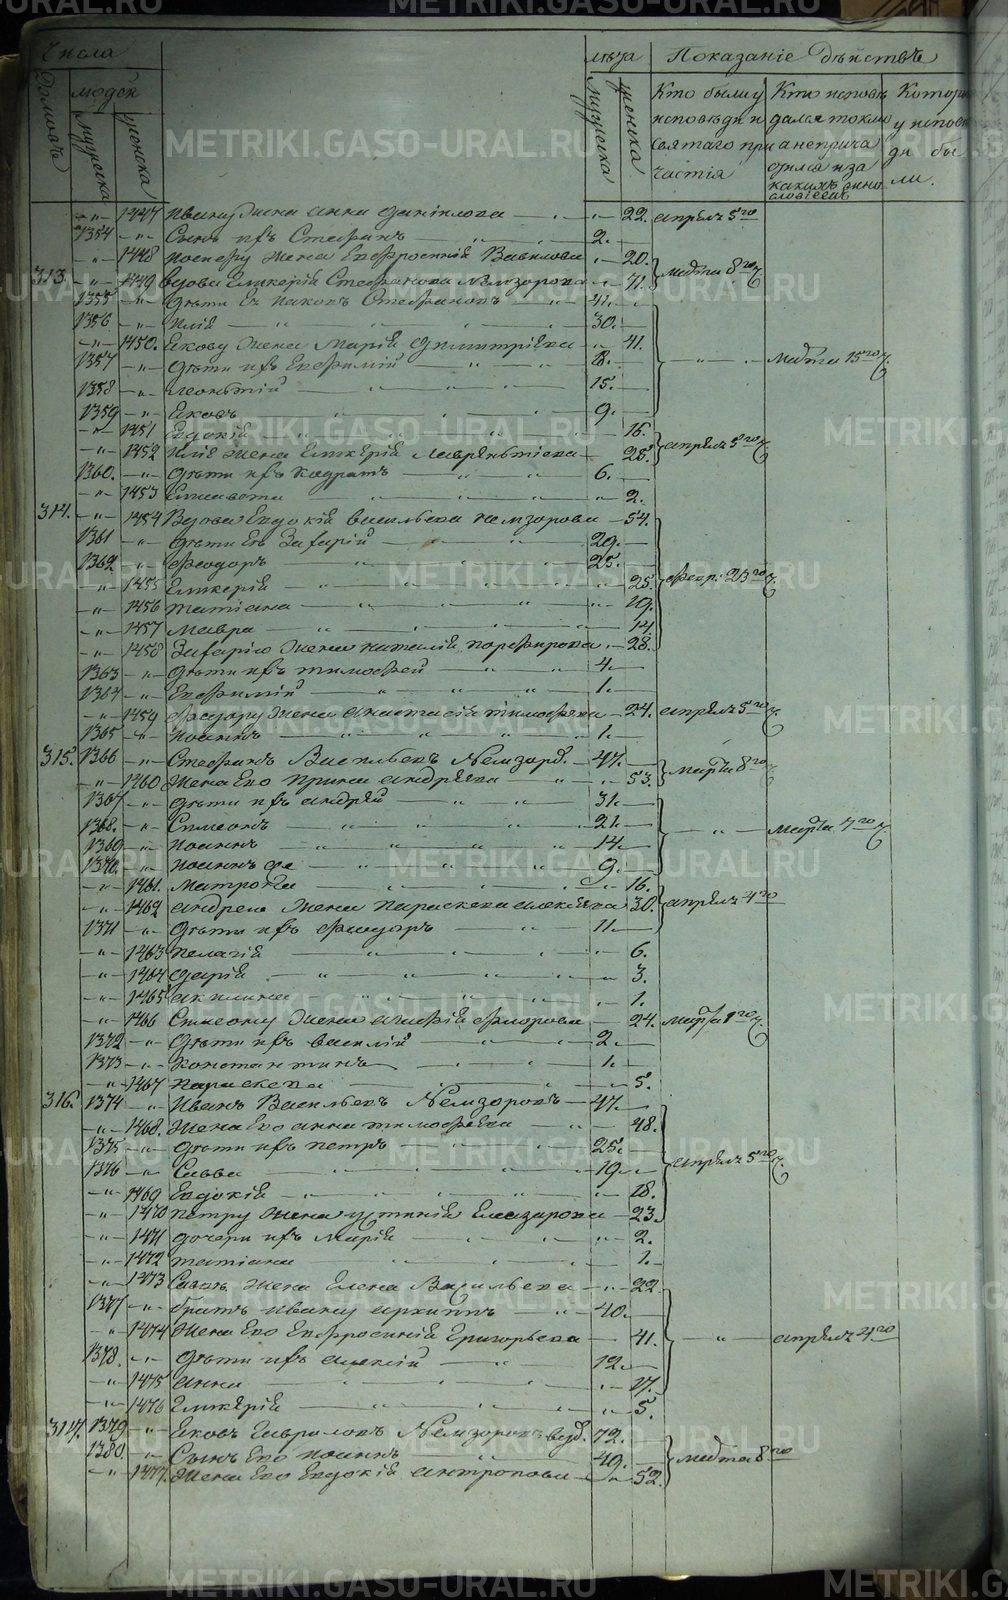 METRIKI.GASO-URAL.RU
Числа
лѣта
Показаніе дѣйствъ
Домовъ
людей
мужеска
женска
мужеска
женска
Кто были у исповѣди и святаго причастія
Кто исповѣдался токмо а непричастился и за какимъ винословіемъ
у исповѣди бы ли.
1447 Ивану жена Анна Данилова 22. апрѣля 5го
1354 Сынъ ихъ Стефанъ 2.
1448 жена Евфросинія Вавилова 20.
313. 1449 Вдова Гликерія Стефанова Немзорова 71. марта 8го ч.
1355 дѣти ея Іаковъ Стефановъ 41.
1356 Илія 30.
1450. Іакову жена Марія Димитріева 41.
1357 дѣти ихъ Евфимій 18. марта 15го ч.
1358 Леонтій 15.
1359 Іаковъ 9.
1451 Евдокія 16.
1452 Иліи жена Гликерія Лаврентіева 28. апрѣля 5го ч.
1360. дѣти ихъ Кодратъ 6.
1453 Елисавета 2.
314. 1454 Вдова Евдокія Васильева Немзорова 54.
1361 дѣти ея Захарій 29.
1362 Феодоръ 25.
1455 Гликерія 25. февр. 23го ч.
1456 Татіана 19.
1457 Мавра 14.
1458 Захарію жена Наталія Порфирова 28.
1363 дѣти ихъ Тимофей 4.
1364 Евфимій 1.
1459 Феодору жена Анастасія Тимофеева 24. апрѣля 5го ч.
1365 Іоаннъ 1.
315. 1366 Стефанъ Васильевъ Немзоров. 47.
1460 Жена его Ирина Андреева 53. марта 8го
1367 дѣти ихъ Андрей 31.
1368. Симеонъ 21. марта 7го ч.
1369 Іоаннъ 14.
1370. Іоаннъ 9.
1461. Матрона 16.
1462 Андрею жена Параскева Алексѣева 30. апрѣля 4го
1371 дѣти ихъ Феодоръ 11.
1463 Пелагія 6.
1464 Дарія 3.
1465 Акилина 1.
1466 Симеону жена Агафія Флорова 24. марта 8го ч.
1372 дѣти ихъ Василій 2.
1373 Константинъ 1.
1467 Параскева 5.
316. 1374 Иванъ Васильевъ Немзоровъ 47.
1468. Жена его Анна Тимофеева 48.
1375 дѣти ихъ Петръ 25.
1376 Савва 19. апрѣля 5го ч.
1469 Евдокія 18.
1470 Петру жена Устинія Елеазарова 23.
1471 дочери ихъ Марія 2.
1472 Татіана 1.
1473 Саввѣ жена Елена Васильева 22.
1377 братъ Ивану Архиппъ 40.
1474 Жена его Евфросинія Григорьева 41. апрѣля 4го
1378. дѣти ихъ Алексій 12.
1475 Анна 17.
1476 Гликерія 5.
317. 1379 Іаковъ Гавриловъ Немзоровъ вдов. 72.
1380. Сынъ его Іоаннъ 49. марта 8го
1477. Жена его Евдокія Антропова 52.